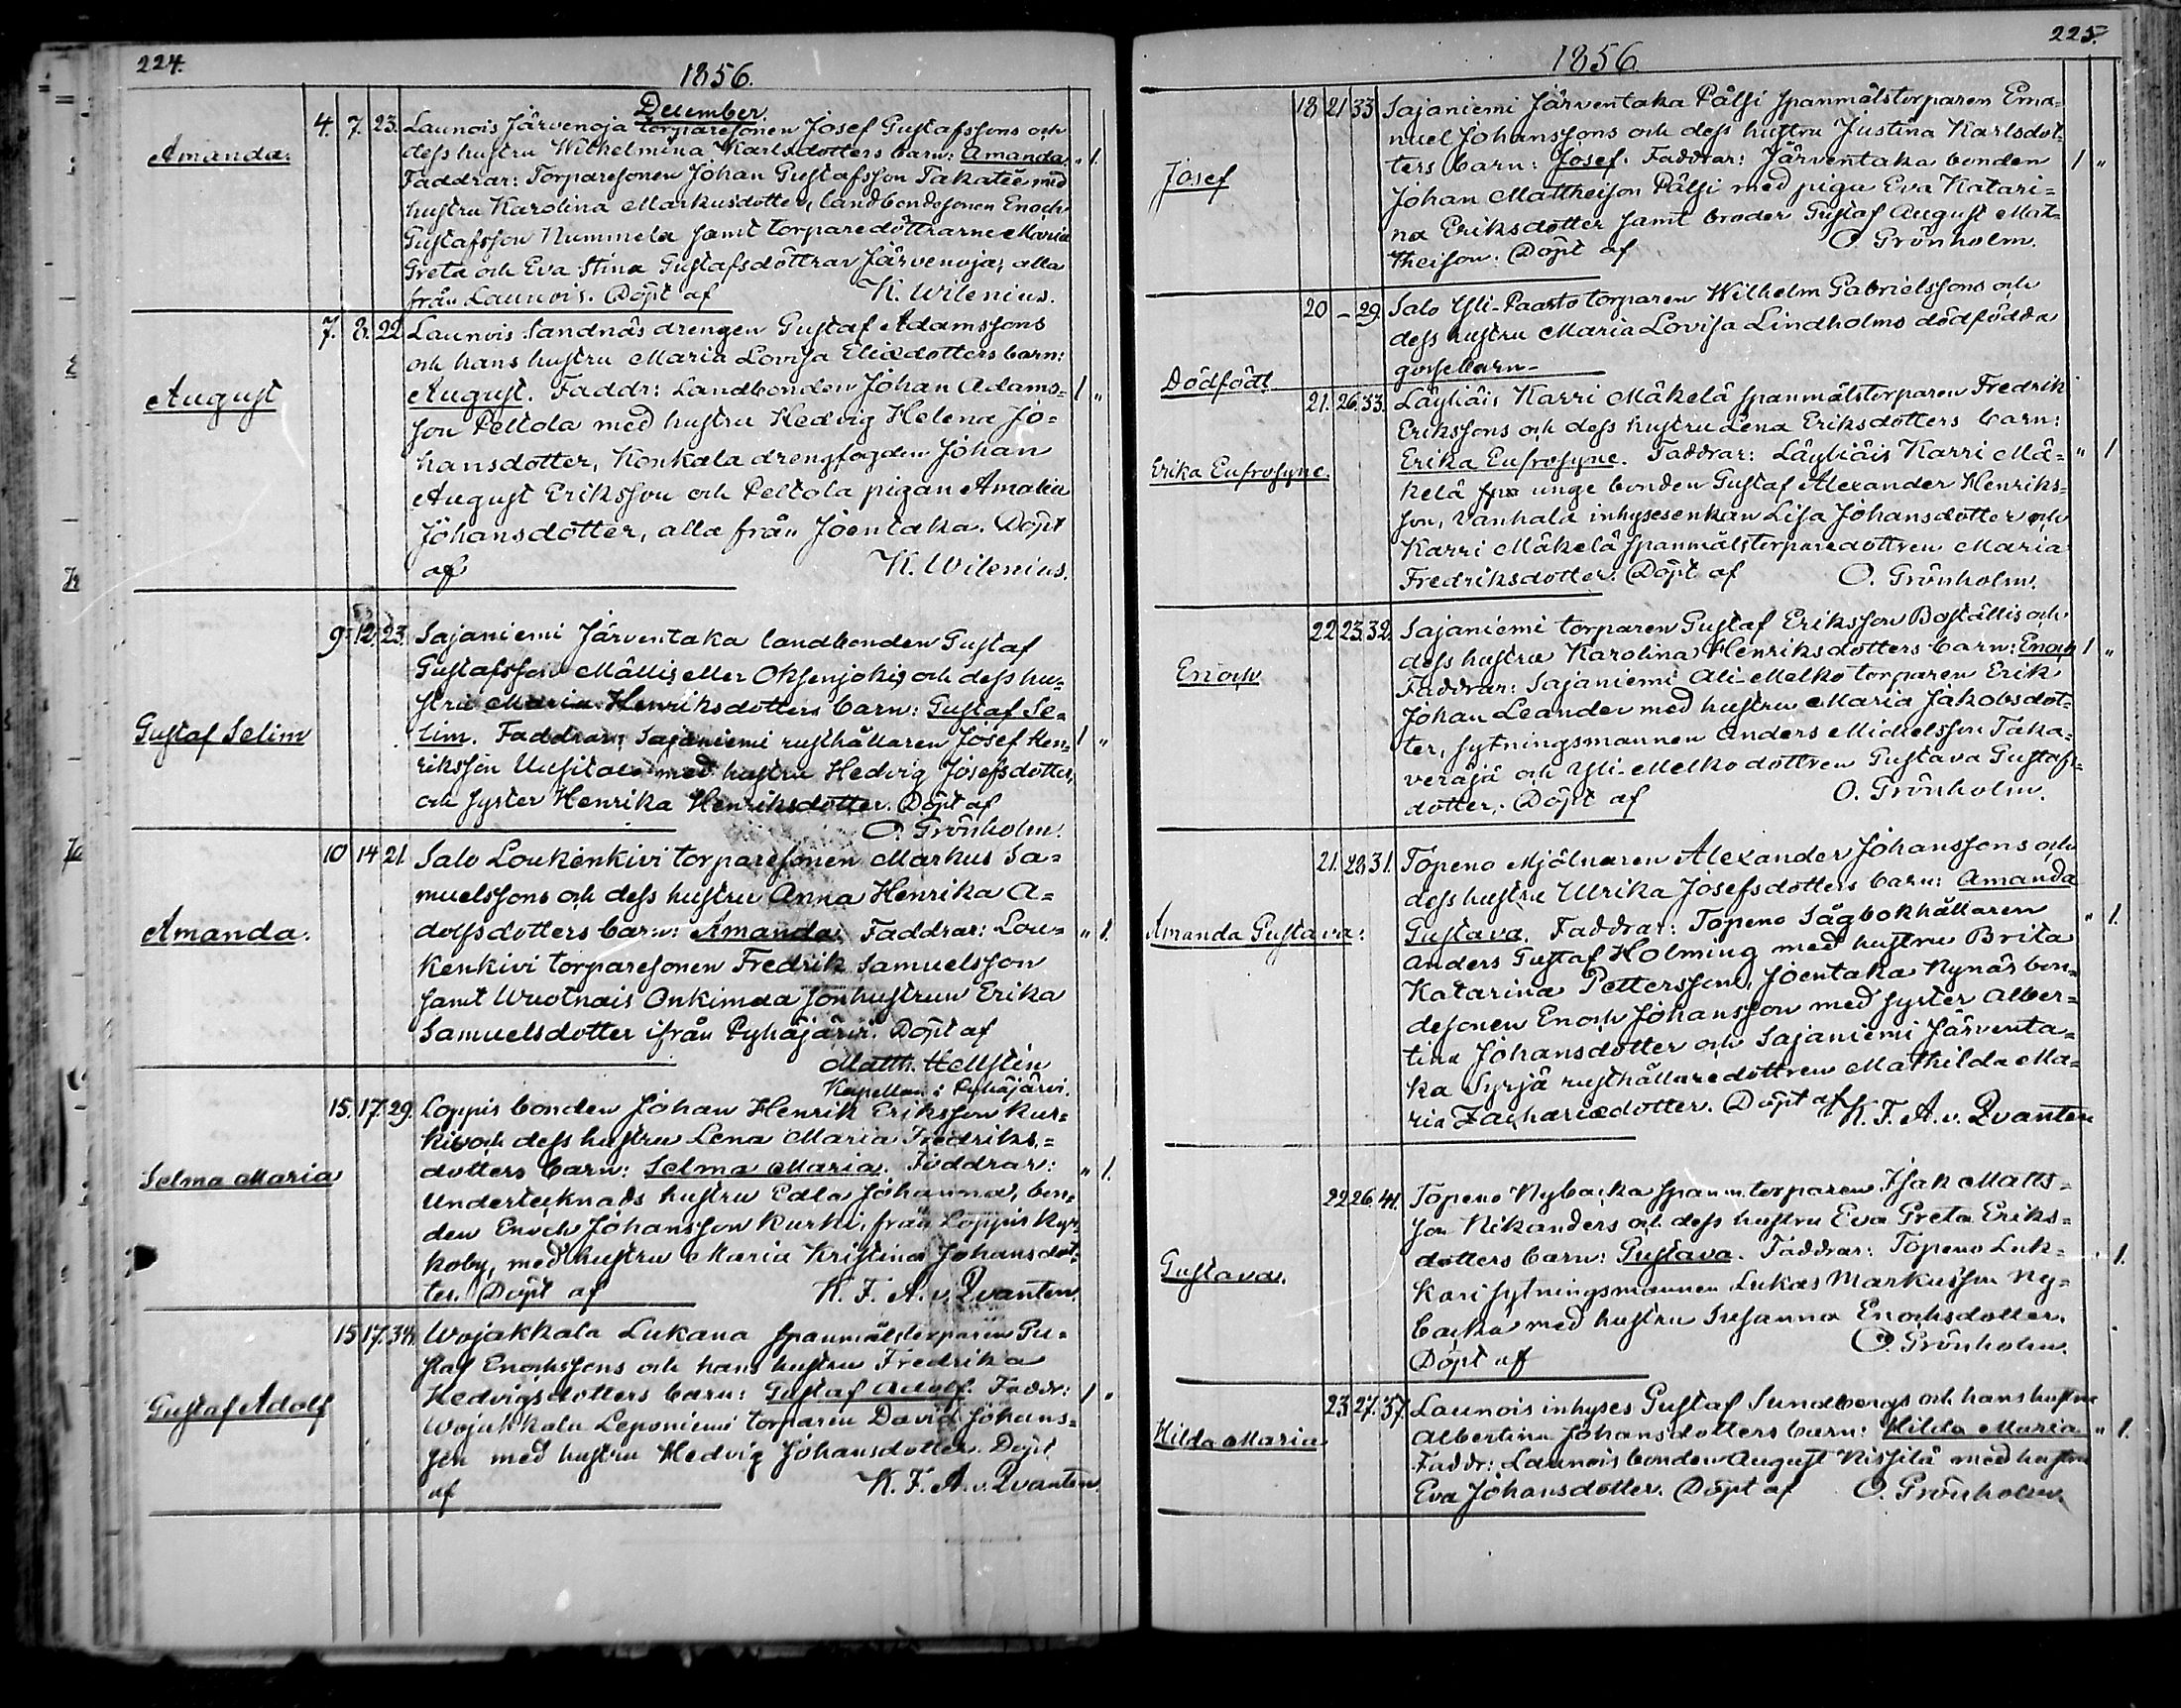 224.
1856.
December.
Amanda.
4. 7. 23. Launois Järvenoja torparesonen Josef Gustafssons och
dess hustru Wilhelmina Karlsdotters barn: Amanda. " 1.
Faddrar: Torparesonen Johan Gustafsson Takatie med
hustru Karolina Markusdotter, landbondesonen Enoch
Gustafsson Nummela samt torparedöttrarne Maria
Greta och Eva Stina Gustafsdöttrar Järvenoja, alla
från Launois. Döpt af K. Wilenius.
August
7. 8. 22. Launois Sandnäs drengen Gustaf Adamssons
och hans hustru Maria Lovisa Eliædotters barn:
August. Faddr: Landbonden Johan Adams= 1 "
son Peltola med hustru Hedvig Helena Jo=
hansdotter, Konkala drengfogden Johan
August Eriksson och Peltola pigan Amalia
Johansdotter, alla från Joentaka. Döpt
af K. Wilenius.
Gustaf Selim
9. 12. 23. Sajaniemi Järventaka landbonden Gustaf
Gustafsson Mällis eller Oksenjokis och dess hu=
stru Maria Henriksdotters barn: Gustaf Se=
lim. Faddrar: Sajaniemi rusthållaren Josef Hen= 1 "
riksson Uusitalo med hustru Hedvig Josefsdotter,
och syster Henrika Henriksdotter. Döpt af
O. Grönholm.
Amanda.
10 14 21. Salo Loukenkivi torparesonen Markus Sa=
muelssons och dess hustru Anna Henrika A=
dolfsdotters barn: Amanda. Faddrar: Lou= " 1.
kenkivi torparesonen Fredrik Samuelsson
samt Wuotnais Onkimaa sonhustrun Erika
Samuelsdotter ifrån Pyhäjärvi. Döpt af
Matth. Hellstén
Kapellan i Pyhäjärvi.
Selma Maria
15. 17. 29. Loppis bonden Johan Henrik Eriksson Kur=
kis och dess hustru Lena Maria Fredriks=
dotters barn: Selma Maria. Faddrar: " 1.
Undertecknads hustru Edla Johanna, bon=
den Enoch Johansson Kurki, från Loppis Kyr=
koby, med hustru Maria Kristina Johansdot=
ter. Döpt af K. F. A. v. Qvanten.
Gustaf Adolf
15 17. 34. Wojakkala Lukana spanmålstorparen Gu=
staf Enochssons och hans hustru Fredrika
Hedvigsdotters barn: Gustaf Adolf. Faddr: 1 "
Wojakkala Leponiemi torparen David Johans=
son med hustru Hedvig Johansdotter. Döpt
af K. F. A. v. Qvanten.
225.
1856.
Josef
18 21 33 Sajaniemi Järventaka Pälsi spanmålstorparen Ema=
nuel Johanssons och dess hustru Justina Karlsdot=
ters barn: Josef. Faddrar: Järventaka bonden 1 "
Johan Mattheison Pälsi med piga Eva Katari=
na Eriksdotter samt broder Gustaf August Mat=
theison. Döpt af O. Grönholm.
Dödfödt
20 — 29. Salo Yli-Paasto torparen Wilhelm Gabrielssons och
dess hustru Maria Lovisa Lindholms dödfödda
gossebarn.
Erika Eufrosyne.
21. 26. 33. Läyliäis Karri Mäkelä spanmålstorparen Fredrik
Erikssons och dess hustru Lena Eriksdotters barn:
Erika Eufrosyne. Faddrar: Läyliäis Karri Mä= " 1
kelä unge bonden Gustaf Alexander Henriks=
son, Vanhala inhysesenkan Lisa Johansdotter och
Karri Mäkelä spanmålstorparedottren Maria
Fredriksdotter. Döpt af O. Grönholm.
Enoch
22 23. 32. Sajaniemi torparen Gustaf Eriksson Boställis och
dess hustru Karolina Henriksdotters barn: Enoch 1 "
Faddrar: Sajaniemi Ali-Melko torparen Erik
Johan Leander med hustru Maria Jakobsdot=
ter, sytningsmannen Anders Michelsson Taka=
veräjä och Yli-Melko dottren Gustava Gustafs=
dotter. Döpt af O. Grönholm.
Amanda Gustava.
21. 28. 31. Topeno Mjölnaren Alexander Johanssons och
dess hustru Ulrika Josefsdotters barn: Amanda
Gustava. Faddrar: Topeno Sågbokhållaren " 1.
Anders Gustaf Holming med hustru Brita
Katarina Pettersson, Joentaka Nynäs bon=
desonen Enoch Johansson med syster Alber=
tina Johansdotter och Sajaniemi Järventa=
ka Syrjä rusthållaredottren Mathilda Ma=
ria Zachariædotter. Döpt af K. F. A. v. Qvanten
Gustava.
22 26. 41. Topeno Nybacka spanm. torparen Isak Matts=
son Nikanders och dess hustru Eva Greta Eriks=
dotters barn: Gustava. Faddrar: Topeno Luk= " 1.
kari sytningsmannen Lukas Markusson Ny=
backa med hustru Susanna Enochsdotter.
Döpt af O. Grönholm.
Hilda Maria
23. 27. 37. Launois inhyses Gustaf Sundbergs och hans hustru
Albertina Johansdotters barn: Hilda Maria " 1.
Faddr: Launois bonden August Nissilä med hustru
Eva Johansdotter. Döpt af O. Grönholm.